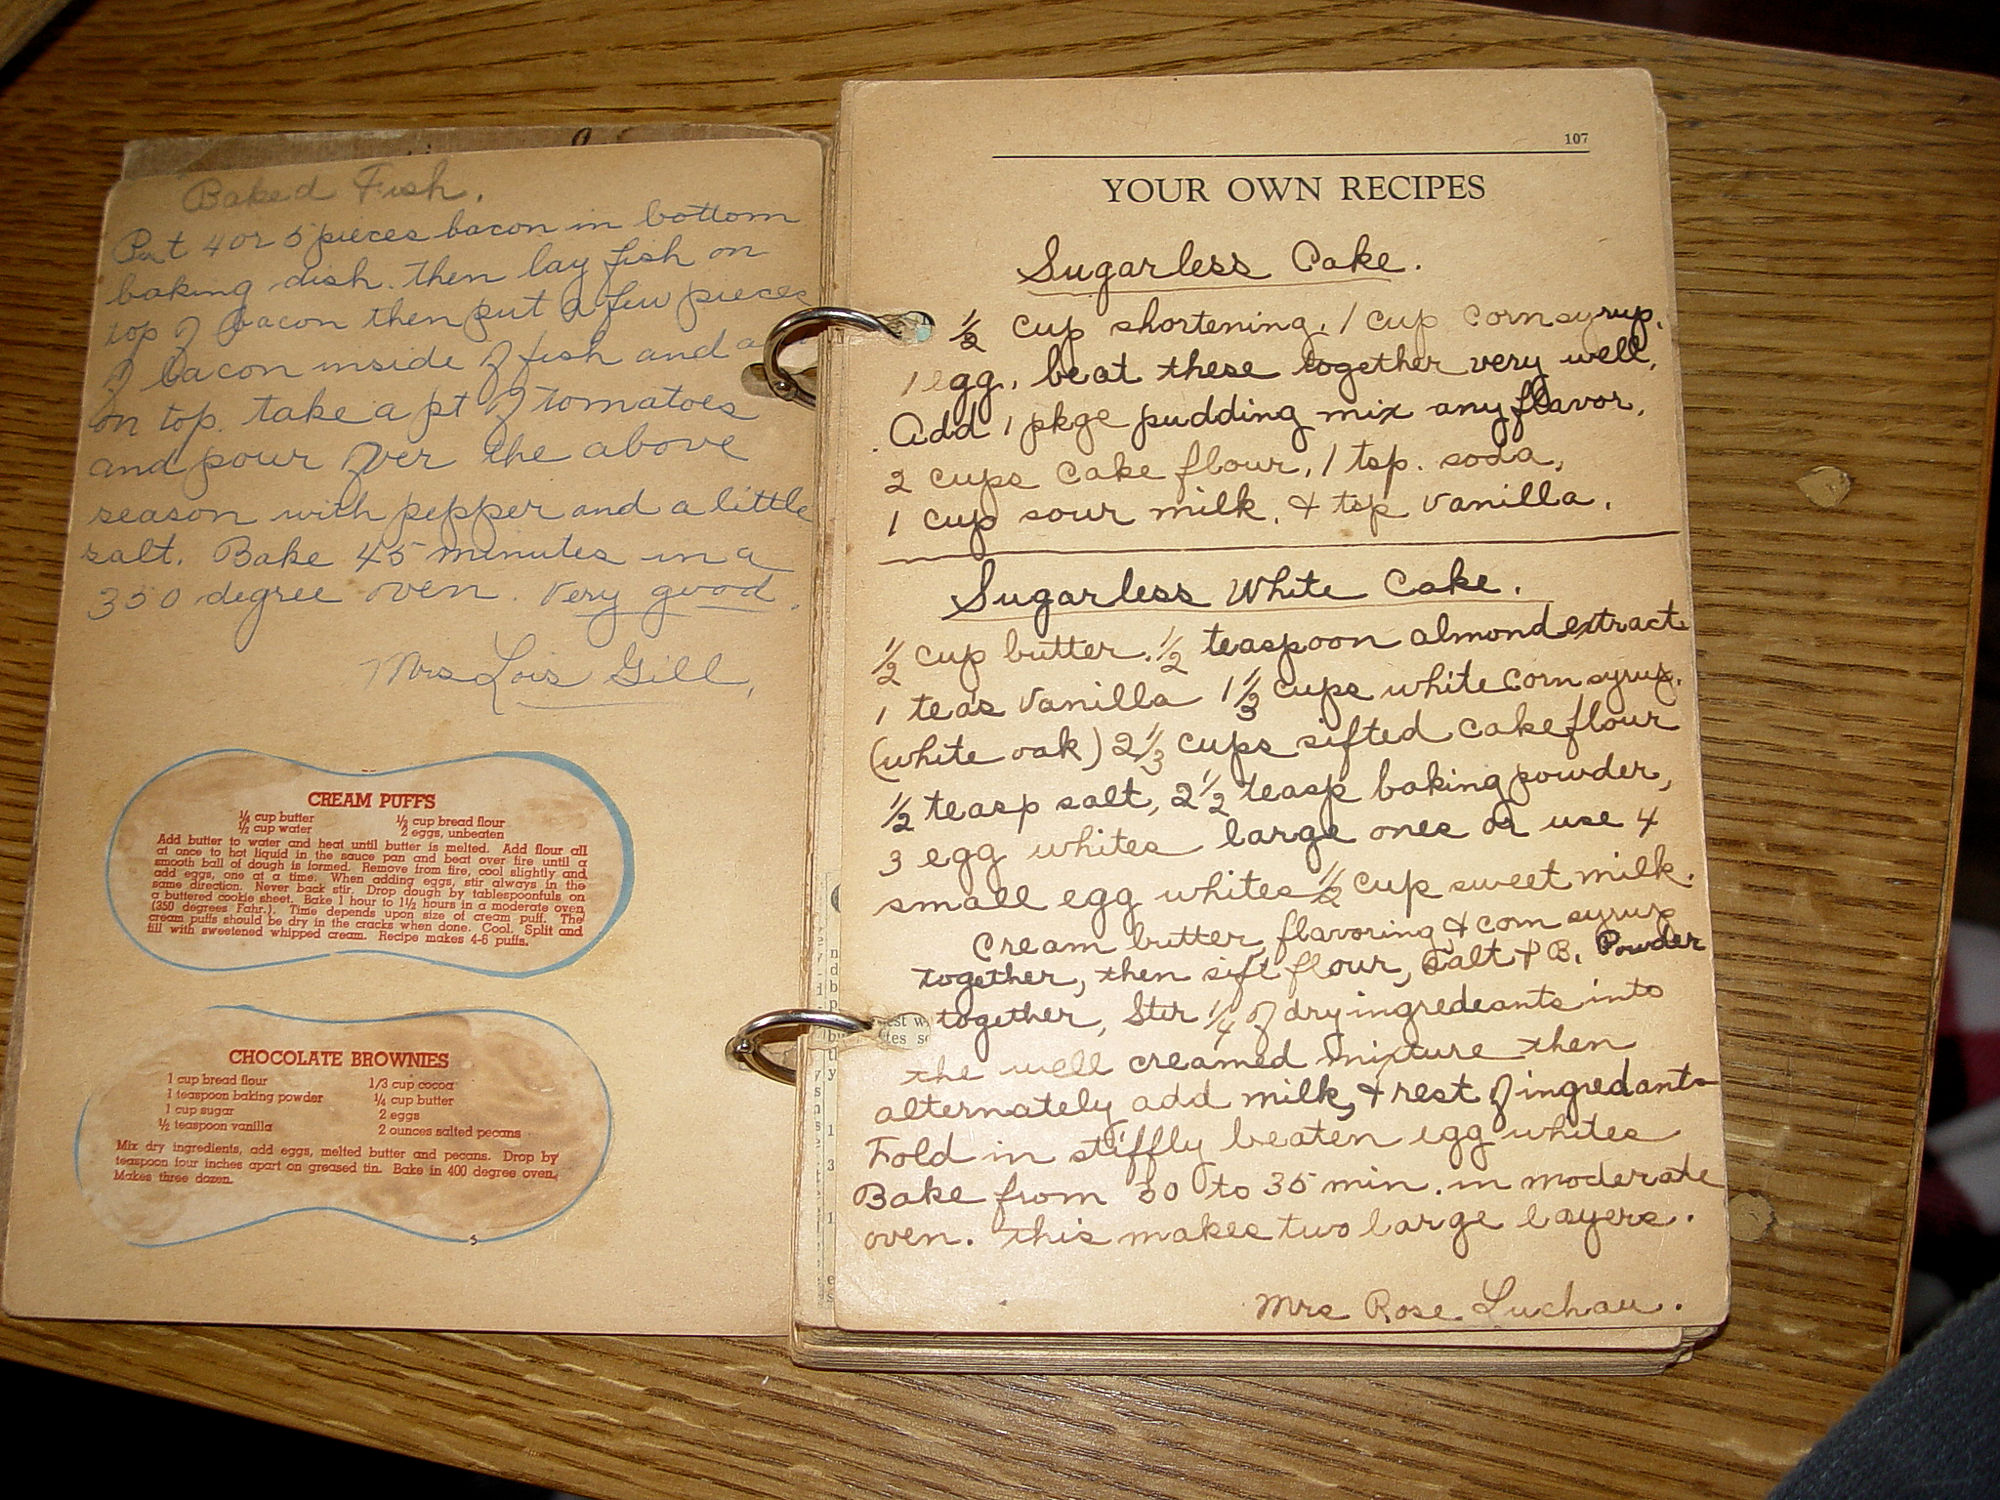 Baked Fish.
Put 4 or 5 pieces bacon in bottom
baking dish. then lay fish on
top of bacon then put a few pieces
of bacon inside of fish and a
on top. take a pt of tomatoes
and pour over the above
season with pepper and a little
salt. Bake 45 minutes in a
350 degree oven. Very good.
Mrs Lois Gill,
CREAM PUFFS
¼ cup butter ½ cup bread flour
½ cup water 2 eggs, unbeaten
Add butter to water and heat until butter is melted. Add flour all
at once to hot liquid in the sauce pan and beat over fire until a
smooth ball of dough is formed. Remove from fire, cool slightly and
add eggs, one at a time. When adding eggs, stir always in the
same direction. Never back stir. Drop dough by tablespoonfuls on
a buttered cookie sheet. Bake 1 hour to 1½ hours in a moderate oven
(350 degrees Fahr.). Time depends upon size of cream puff. The
cream puffs should be dry in the cracks when done. Cool. Split and
fill with sweetened whipped cream. Recipe makes 4-6 puffs.
CHOCOLATE BROWNIES
1 cup bread flour 1/3 cup cocoa
1 teaspoon baking powder ¼ cup butter
1 cup sugar 2 eggs
½ teaspoon vanilla 2 ounces salted pecans
Mix dry ingredients, add eggs, melted butter and pecans. Drop by
teaspoon four inches apart on greased tin. Bake in 400 degree oven.
Makes three dozen.
5
107
YOUR OWN RECIPES
Sugarless Cake.
½ cup shortening, 1 cup corn syrup,
1 egg, beat these together very well,
Add 1 pkge pudding mix any flavor,
2 cups cake flour, 1 tsp. soda,
1 cup sour milk, & tsp vanilla.
Sugarless White Cake.
½ cup butter. ½ teaspoon almond extract
1 teas vanilla 1⅓ cups white corn syrup.
(white oak) 2⅓ cups sifted cake flour
½ teasp salt, 2½ teasp baking powder,
3 egg whites large ones or use 4
small egg whites ½ cup sweet milk.
Cream butter, flavoring & corn syrup
together, then sift flour, Salt & B. Powder
together, Stir ¼ of dry ingredeants into
the well creamed mixture then
alternately add milk, & rest of ingredants
Fold in stiffly beaten egg whites
Bake from 30 to 35 min. in moderate
oven. this makes two large layers.
Mrs Rose Luchau.